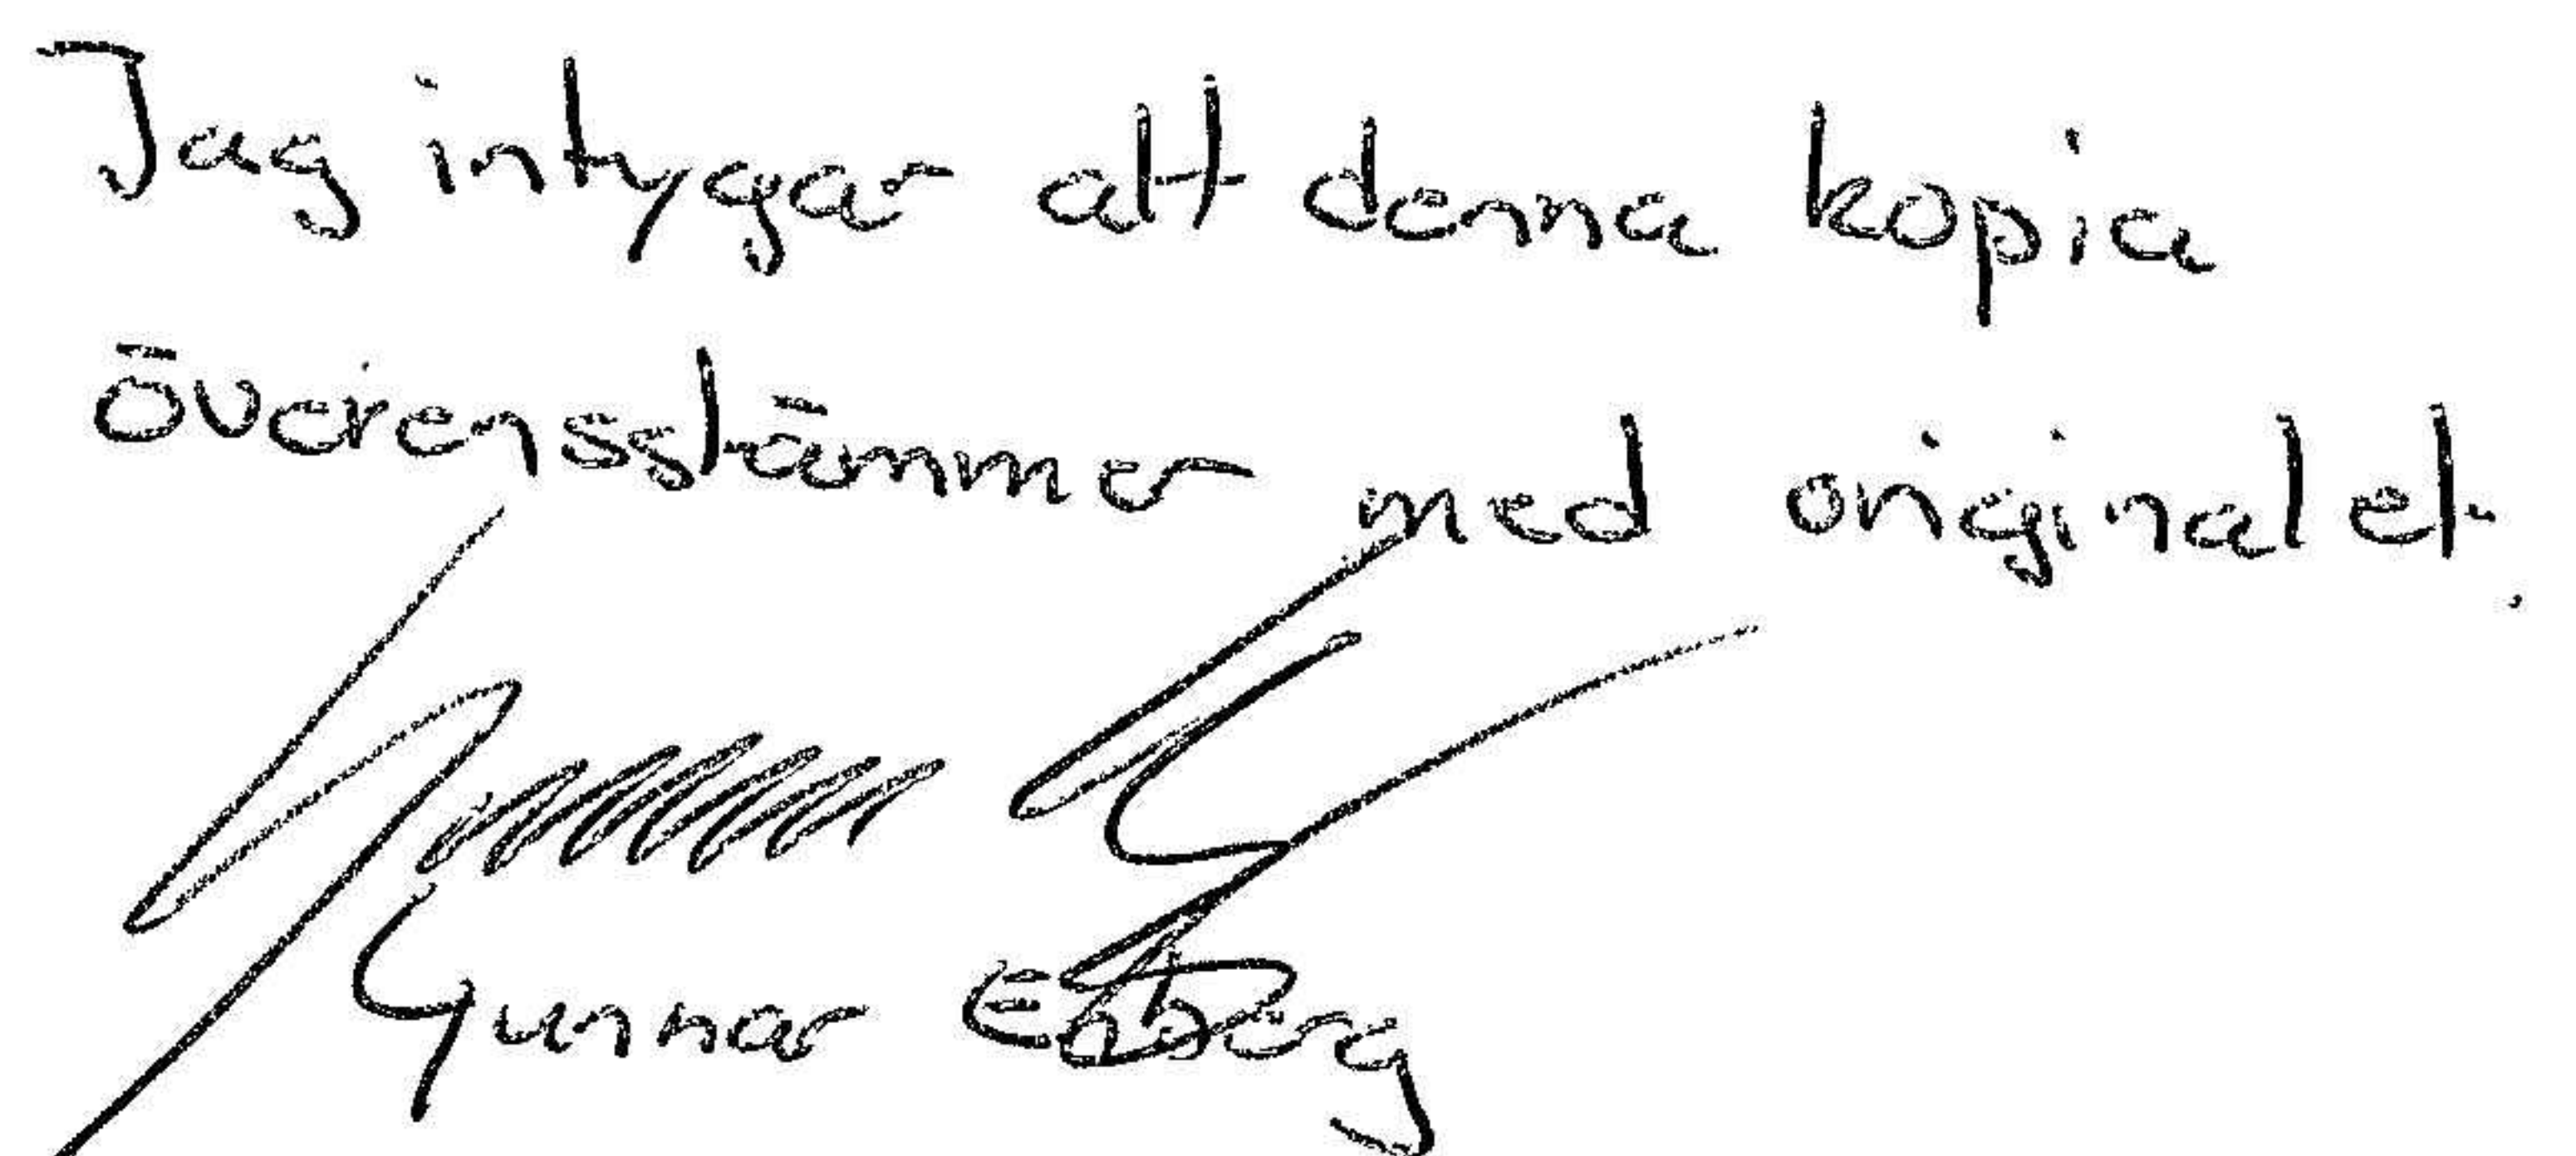 Jag intygar att denna kopia
överensstämmer med originalet.
Gunnar